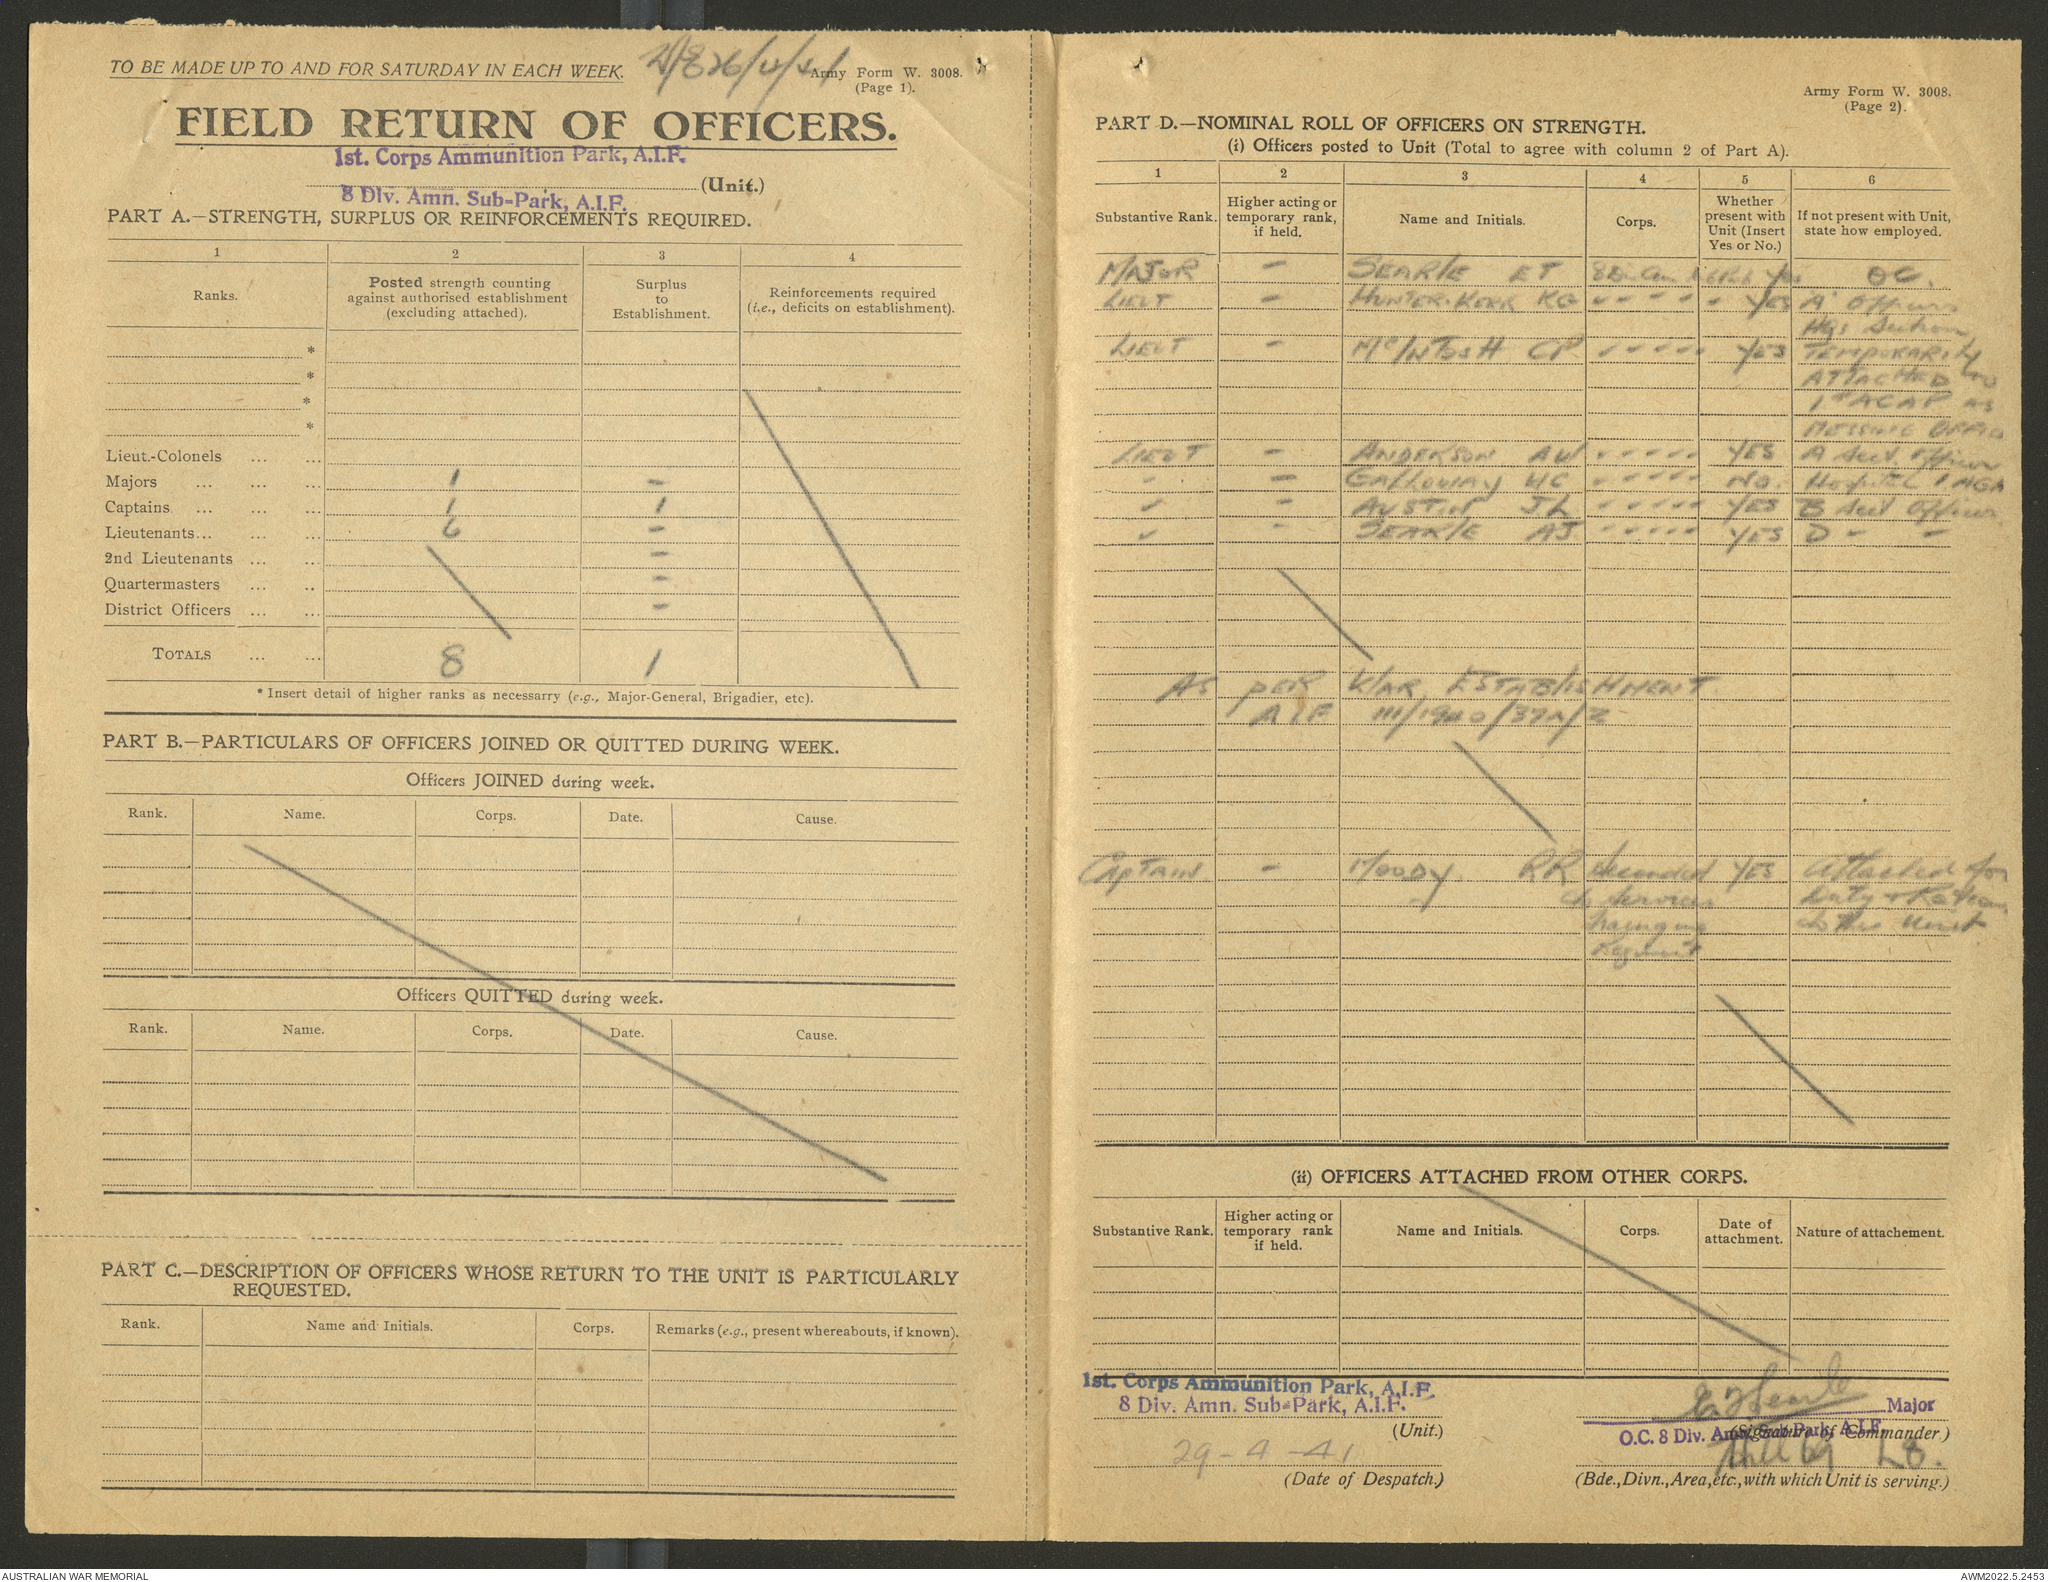 TO BE MADE UP TO AND FOR SATURDAY IN EACH WEEK.
Army Form W. 3008.
(Page 1).
FIELD RETURN OF OFFICERS.
1st. Corps Ammunition Park, A.I.F.
(Unit.)
8 Div. Amn. Sub-Park, A.I.F.
PART A.—STRENGTH, SURPLUS OR REINFORCEMENTS REQUIRED.
1 2 3 4
Ranks.
Posted strength counting against authorised establishment (excluding attached).
Surplus to Establishment.
Reinforcements required (i.e., deficits on establishment).
*
*
*
*
Lieut.-Colonels ... ...
Majors ... ... ... 1 -
Captains ... ... ... 1 1
Lieutenants... ... ... 6 -
2nd Lieutenants ... ... -
Quartermasters ... .. -
District Officers ... ... -
TOTALS ... ... 8 1
* Insert detail of higher ranks as necessarry (e.g., Major-General, Brigadier, etc).
PART B.—PARTICULARS OF OFFICERS JOINED OR QUITTED DURING WEEK.
Officers JOINED during week.
Rank. Name. Corps. Date. Cause.
Officers QUITTED during week.
Rank. Name. Corps. Date. Cause.
PART C.—DESCRIPTION OF OFFICERS WHOSE RETURN TO THE UNIT IS PARTICULARLY
REQUESTED.
Rank. Name and Initials. Corps. Remarks (e.g., present whereabouts, if known).
Army Form W. 3008.
(Page 2).
PART D.—NOMINAL ROLL OF OFFICERS ON STRENGTH.
(i) Officers posted to Unit (Total to agree with column 2 of Part A).
1 2 3 4 5 6
Substantive Rank.
Higher acting or temporary rank, if held.
Name and Initials.
Corps.
Whether present with Unit (Insert Yes or No.)
If not present with Unit, state how employed.
MAJOR - SEARLE ET 8 Div Amn Yes OC.
LIEUT - HUNTER-KERR KG " " " " " YES "A" Officer
Hqs Section
LIEUT - McINTOSH CP " " " " " YES TEMPORARILY
ATTACHED to
1st ACAP AS
MESSING OFFIC
LIEUT - ANDERSON AW " " " " " YES A Sect. Officer
" - GALLOWAY HC " " " " " NO. Hospital 1 AGH
" - AUSTIN JL " " " " " YES B Sect Officer
" - SEARLE AJ " " " " " YES D " "
AS PER WAR ESTABLISHMENT
AIF III/1940/37A/2
Captain - MOODY RR Seconded YES Attached for
to Services Duty & Rations
Training to this Unit
Regiment
(ii) OFFICERS ATTACHED FROM OTHER CORPS.
Substantive Rank.
Higher acting or temporary rank if held.
Name and Initials.
Corps.
Date of attachment.
Nature of attachement.
1st. Corps Ammunition Park, A.I.F.
8 Div. Amn. Sub-Park, A.I.F.
(Unit.)
29-4-41
(Date of Despatch.)
E T Searle Major
(Signature of Commander.)
O.C. 8 Div. Amn. Sub-Park, A.I.F.
(Bde., Divn., Area, etc., with which Unit is serving.)
AUSTRALIAN WAR MEMORIAL
AWM2022.5.2453